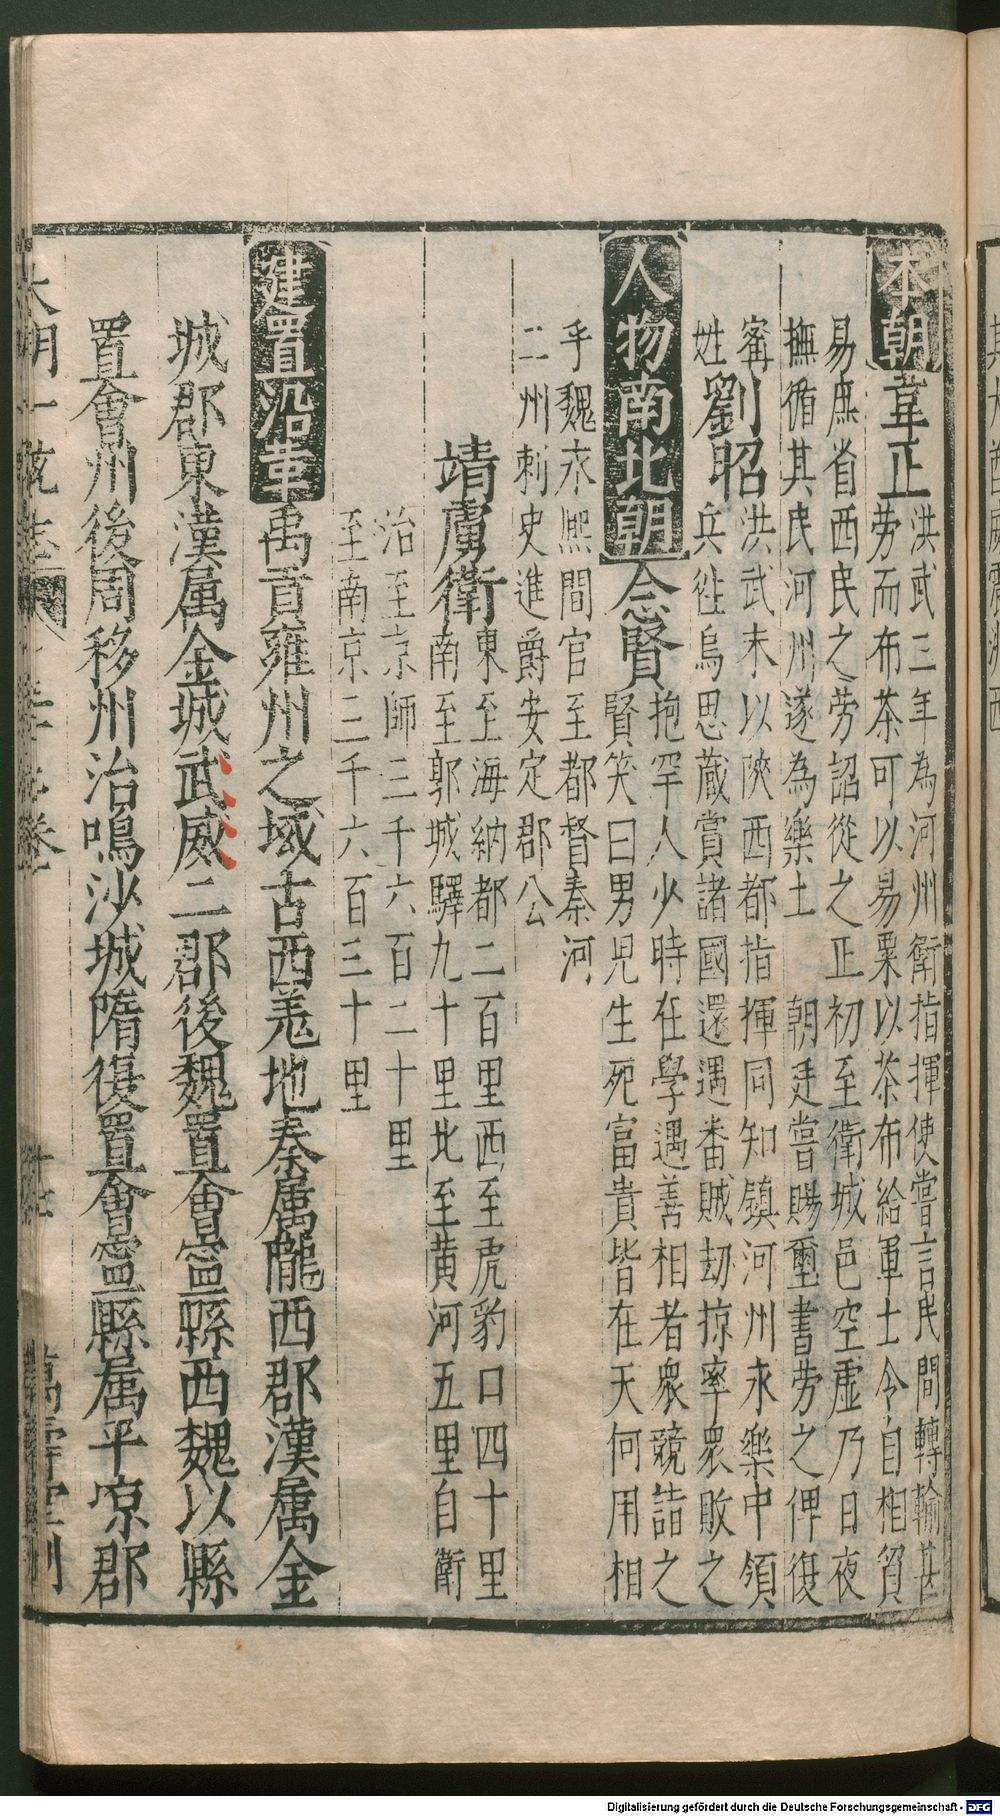 本朝韋正洪武三年為河州衛指揮使嘗言民間轉輸甚
勞而布茶可以易粟以茶布給軍士令自相貿
易庶省西民之勞詔從之正初至衛城邑空虛乃日夜
撫循其民河州遂為樂土　朝廷嘗賜璽書勞之俾復
姓
甯
劉昭洪武末以陝西都指揮同知鎮河州永樂中領
兵徃烏思蔵賞諸國還遇番賊刼掠率衆敗之
人物南北朝念賢抱罕人少時在學遇善相者衆競詣之
賢笑曰男兒生死富貴皆在天何用相
乎魏永熈間官至都督秦河
二州刺史進爵安定郡公
靖虜衛東至海納都二百里西至虎豹口四十里
南至郭城驛九十里北至黃河五里自衛
治至京師三千六百二十里
至南京三千六百三十里
建置沿革禹貢雍州之域古西羗地秦属隴西郡漢属金
城郡東漢属金城武威二郡後魏置會寧縣西魏以縣
置會州後周移州治鳴沙城隋復置會寧縣属平凉郡
大明一統志
卷
萬壽堂刊
Digitalisierung gefördert durch die Deutsche Forschungsgemeinschaft - DFG